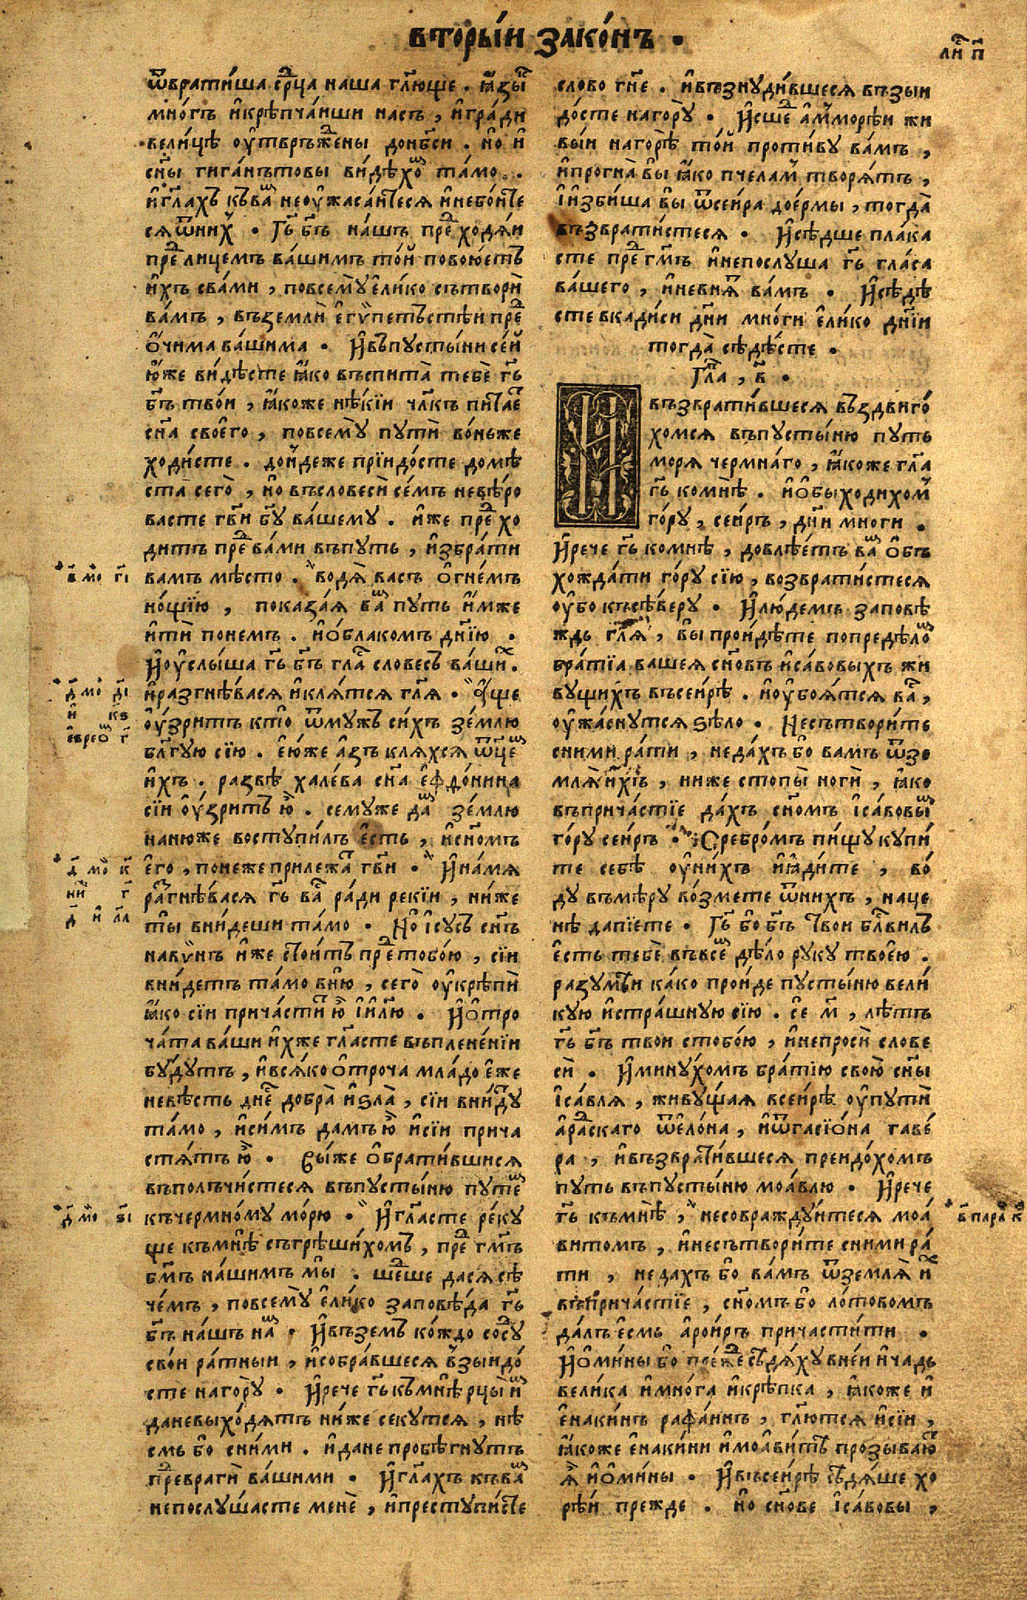 вторы́и зако́нъ .
ли́ п҃
ѿврати́ша ср҃ца наша гл҃юще . ꙗ҆зы́
мно́гъ и҆крѣпча́иши насъ , и҆гра́ди
вели́цѣ ѹ҆твръже́ны донб҃си . но и҆
сн҃ы гиганътовы ви́дѣхо тамо .
и҆гл҃ахъ къва неоужаса́итеся и҆небо́ите
сяѿни́х . Гь҃ бг҃ъ на́шъ пре ходя́и
пре лицемъ ва́шимъ то́и повою́етъ
и҆́хъ сва́ми , повсемѹ̀ е҆ли́ко сътворѝ
ва́мъ , въземлѝ е҆гѵ́петъстѣи пре
ѻ҆чи́ма ва́шима . И҆въпусты́ни се́и
ю҆́же ви́дѣсте ꙗ҆́ко въспита̀ тебѐ гь҃
бг҃ъ тво́и , ꙗ҆́коже нѣ́кїи чл҃къ пита́е
сн҃а своего̀ , повсемѹ̀ путѝ во́ньже
ходи́сте . до́ндеже прїидо́сте домѣ
ста̀ сего̀ , но въсловесѝ се́мъ невѣ́ро
васте гв҃и бг҃у ва́шему . и҆́же пре хо
дитъ пре ва́ми въпу́ть , и҆збра́ти
вамъ мѣ́сто . водя̀ васъ ѻ҆гне́мъ
но́щїю , показа́я ва пу́ть и҆́мже
и҆тѝ понемъ . и҆ѻ҆́блакомъ дн҃їю .
И҆ѹ҆слы́ша гь҃ бг҃ъ гла словесъ ва́ши .
и҆разгнѣ́вася и҆кля́тся гл҃я . а҆́ще
ѹ҆́зритъ кто̀ ѿмужъ си́хъ зе́млю
бл҃гую сїю . е҆ю́же а҆́зъ кля́хся ѿце
и҆́хъ . развѣ̀ хале́ва сн҃а е҆фдо́нина
сїи ѹ҆́зритъ ю҆̀ . семуже да зе́млю
нанюже востѹпи́лъ е҆́сть , и҆сн҃омъ
е҆го̀ , понеже прилежа гв҃и . И҆на́мя
разгнѣ́вася гь҃ ва ра́ди рекїи , ни́же
ты̀ вни́деши та́мо . Но і҆су́съ сн҃ъ
навѵ́инъ и҆́же стои́тъ пре тобо́ю , сїи
вни́детъ та́мо вню , сего̀ ѹ҆крѣпѝ
ꙗ҆́ко сїи прича́сти ю҆̀ і҆и҃лю . И҆ѻ҆тро
ча́та ва́ши и҆́хже гл҃асте въплене́нїи
бу́дутъ , и҆вся́ко ѻ҆троча мла́до е҆́же
невѣ́сть дне добра̀ и҆ѕла̀ , сїи вни́ду
та́мо , и҆си́мъ дамъ ю҆̀ и҆сїи прича
стя́тъ ю҆̀ . Вы́же ѻ҆брати́вшися
въпоълчи́теся въпусты́ню путе
къчермно́му мо́рю . И҆гл҃асте ре́ку
ще къмнѣ̀ съгрѣши́хомъ , пре гм҃ъ
бм҃ъ на́шимъ мы̀ . ше́ше дасясѣ
че́мъ , повсемѹ̀ е҆ли́ко заповѣ́да гь҃
бг҃ъ на́шъ на . И҆възе́мъ ко́ждо сосу
свои ра́тныи , и҆собра́вшеся взыидо́
сте наго́рѹ . И҆рече гь҃ къмнѣ̀ рцы̀ и
даневыхо́дятъ ни́же секутся , нѣ
смь бо сни́ми . и҆ дане пробѣ́гнутъ
превраги̇̀ ва́шими . И҆гл҃ахъ къва
непослу́шасте менѐ , и҆преступи́сте
слово гн҃е . и҆възнуди́вшеся възыи
до́сте наго́рѹ . И҆сше а҆мморѣ́и жи
выи наго́рѣ то́и проти́ву ва́мъ ,
и҆прогна̀ вы ꙗ҆́ко пчелам творя́тъ ,
і҆изби́ша вы ѿсеи́ра дое́рмы , тогда̀
възврати́стеся . И҆сѣ́дше пла́ка
сте пре гм҃ъ и҆непослуша гь҃ гла́са
ва́шего , и҆невня ва́мъ . И҆сѣдѣ́
сте вкади́си дн҃и мно́ги е҆ли́ко дн҃їи
тогда̀ сѣдѣ́сте .
Гла , в҃ .
И възврати́вшеся въздвиго́
хомся въпусты́ню путь
моря чермна́го , ꙗ҆́коже гл҃а
гь҃ комнѣ̀ . и҆ѻ҆быходи́хом
го́ру , сеи́ръ , дн҃и многи .
И҆рече гь҃ комнѣ̀ , довлѣ́етъ ва ѻ҆бъ
хожда́ти го́ру сїю , возврати́стеся
ѹ҆́бо късѣ́веру . И҆лю́демъ заповѣ́
ждь гл҃я , вы проидѣ́те попредѣ́ло
бра́тїа вашея сн҃овъ и҆са́вовыхъ жи
ву́щихъ въсеи́рѣ . и҆ѹ҆боя́тся ва ,
ѹ҆жа́снутся ѕѣло . Несътвори́те
сни́ми ра́ти , неда́хъ бо вамъ ѿзе
мля и҆́хъ , ниже стопы̀ ногѝ , ꙗ҆́ко
въприча́стїе да́хъ сн҃омъ і҆са́вовы
го́ру сеи́ръ . Сребро́мъ пи́щу купи́
те себѣ̀ ѹ҆ни́хъ и҆ꙗ҆ди́те , во́
ду въмѣ́ру во́змете ѿнихъ , наце
нѣ̀ дапїе́те . Гь҃ бо бг҃ъ твои бл҃гвилъ
е҆́сть тебѐ въвсе дѣло руку твое́ю .
разумѣи ка́ко про́иде пусты́ню вели́
кую и҆стра́шную сїю . се м҃ , лѣ́тъ
гь҃ бг҃ъ твои стобо́ю , и҆непросѝ слове
сѝ . И҆мину́хомъ бра́тїю свою̀ сн҃ы
і҆са́вля , живу́щая всеи́рѣ ѹ҆путѝ
а҆ра́скаго ѿе҆ло́на , и҆ѿгасїо́на гаве́
ра , и҆възврати́вшеся преидо́хомъ
пу́ть въпусты́ню моа́влю . И҆рече
гь҃ къмнѣ̀ , несовражду́итеся моа́
витомъ , и҆несътвори́те сни́ми ра́
ти , недахъ бо ва́мъ ѿземля̀ и҆
въприча́стїе , сн҃омъ бо ло́товомъ
да́лъ е҆смь а҆рои́ръ прича́стити .
И҆ѻ҆ми́ны бо преже сѣдя́ху вне́и и҆ча́дь
вели́ка и҆мно́га и҆крѣпка , ꙗ҆́коже и҆
е҆на́кимъ рафа́имъ , гл҃ются и҆сїи ,
ꙗ҆́коже е҆на́кини и҆моа́витъ прозываю
ѧ҆̀ и҆ѻ҆ми́ны . И҆въсеи́рѣ сѣдя́ше хо
рѣ́и прежде . но сн҃ове і҆са́вовы ,
в҃ мо г҃і
д҃ мо д҃і
и҆ к҃ѕ
е҆вре г҃
д҃ мо к҃
ни г҃
д҃ и҆ а҃л
д҃ мо ѕ҃і
в҃ пара к҃